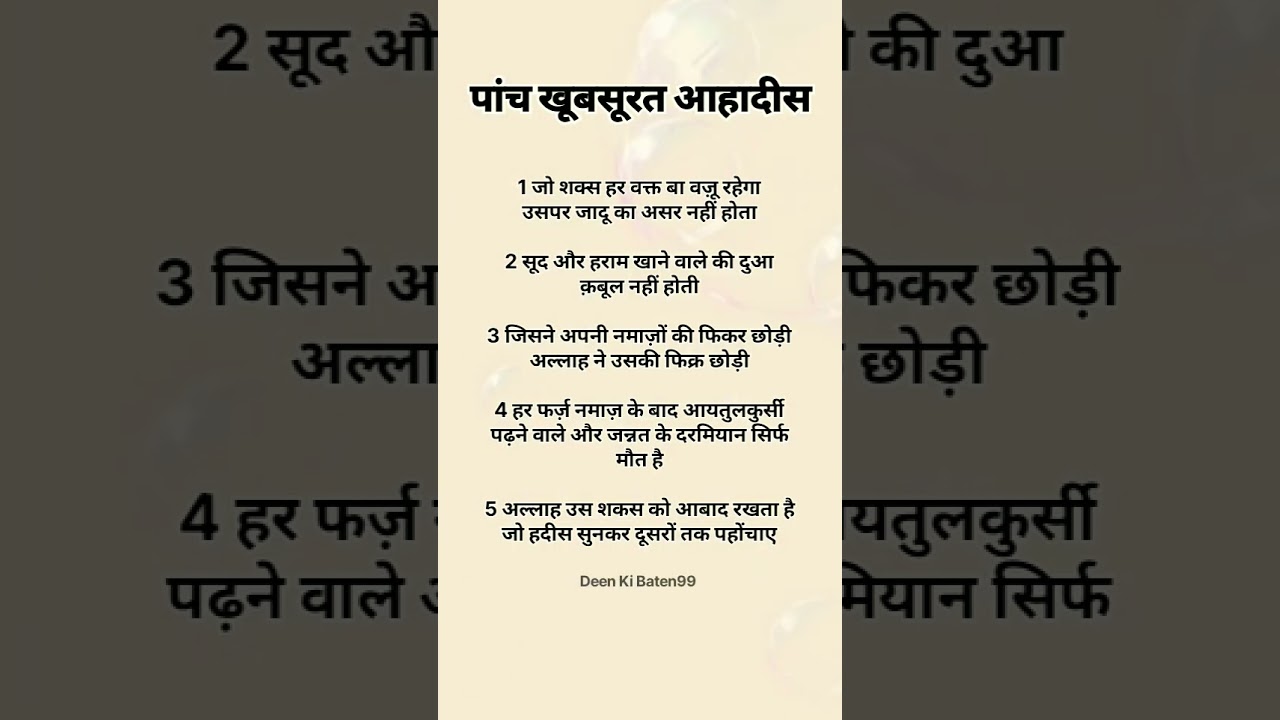 पांच खूबसूरत आहादीस
1 जो शक्स हर वक्त बा वज़ू रहेगा
उसपर जादू का असर नहीं होता
2 सूद और हराम खाने वाले की दुआ
क़बूल नहीं होती
3 जिसने अपनी नमाज़ों की फिकर छोड़ी
अल्लाह ने उसकी फिक्र छोड़ी
4 हर फर्ज़ नमाज़ के बाद आयतुलकुर्सी
पढ़ने वाले और जन्नत के दरमियान सिर्फ
मौत है
5 अल्लाह उस शकस को आबाद रखता है
जो हदीस सुनकर दूसरों तक पहोंचाए
Deen Ki Baten99
2 सूद औ
की दुआ
3 जिसने अ
फिकर छोड़ी
अल्ला
छोड़ी
4 हर फर्ज़
यतुलकुर्सी
पढ़ने वाले
मियान सिर्फ